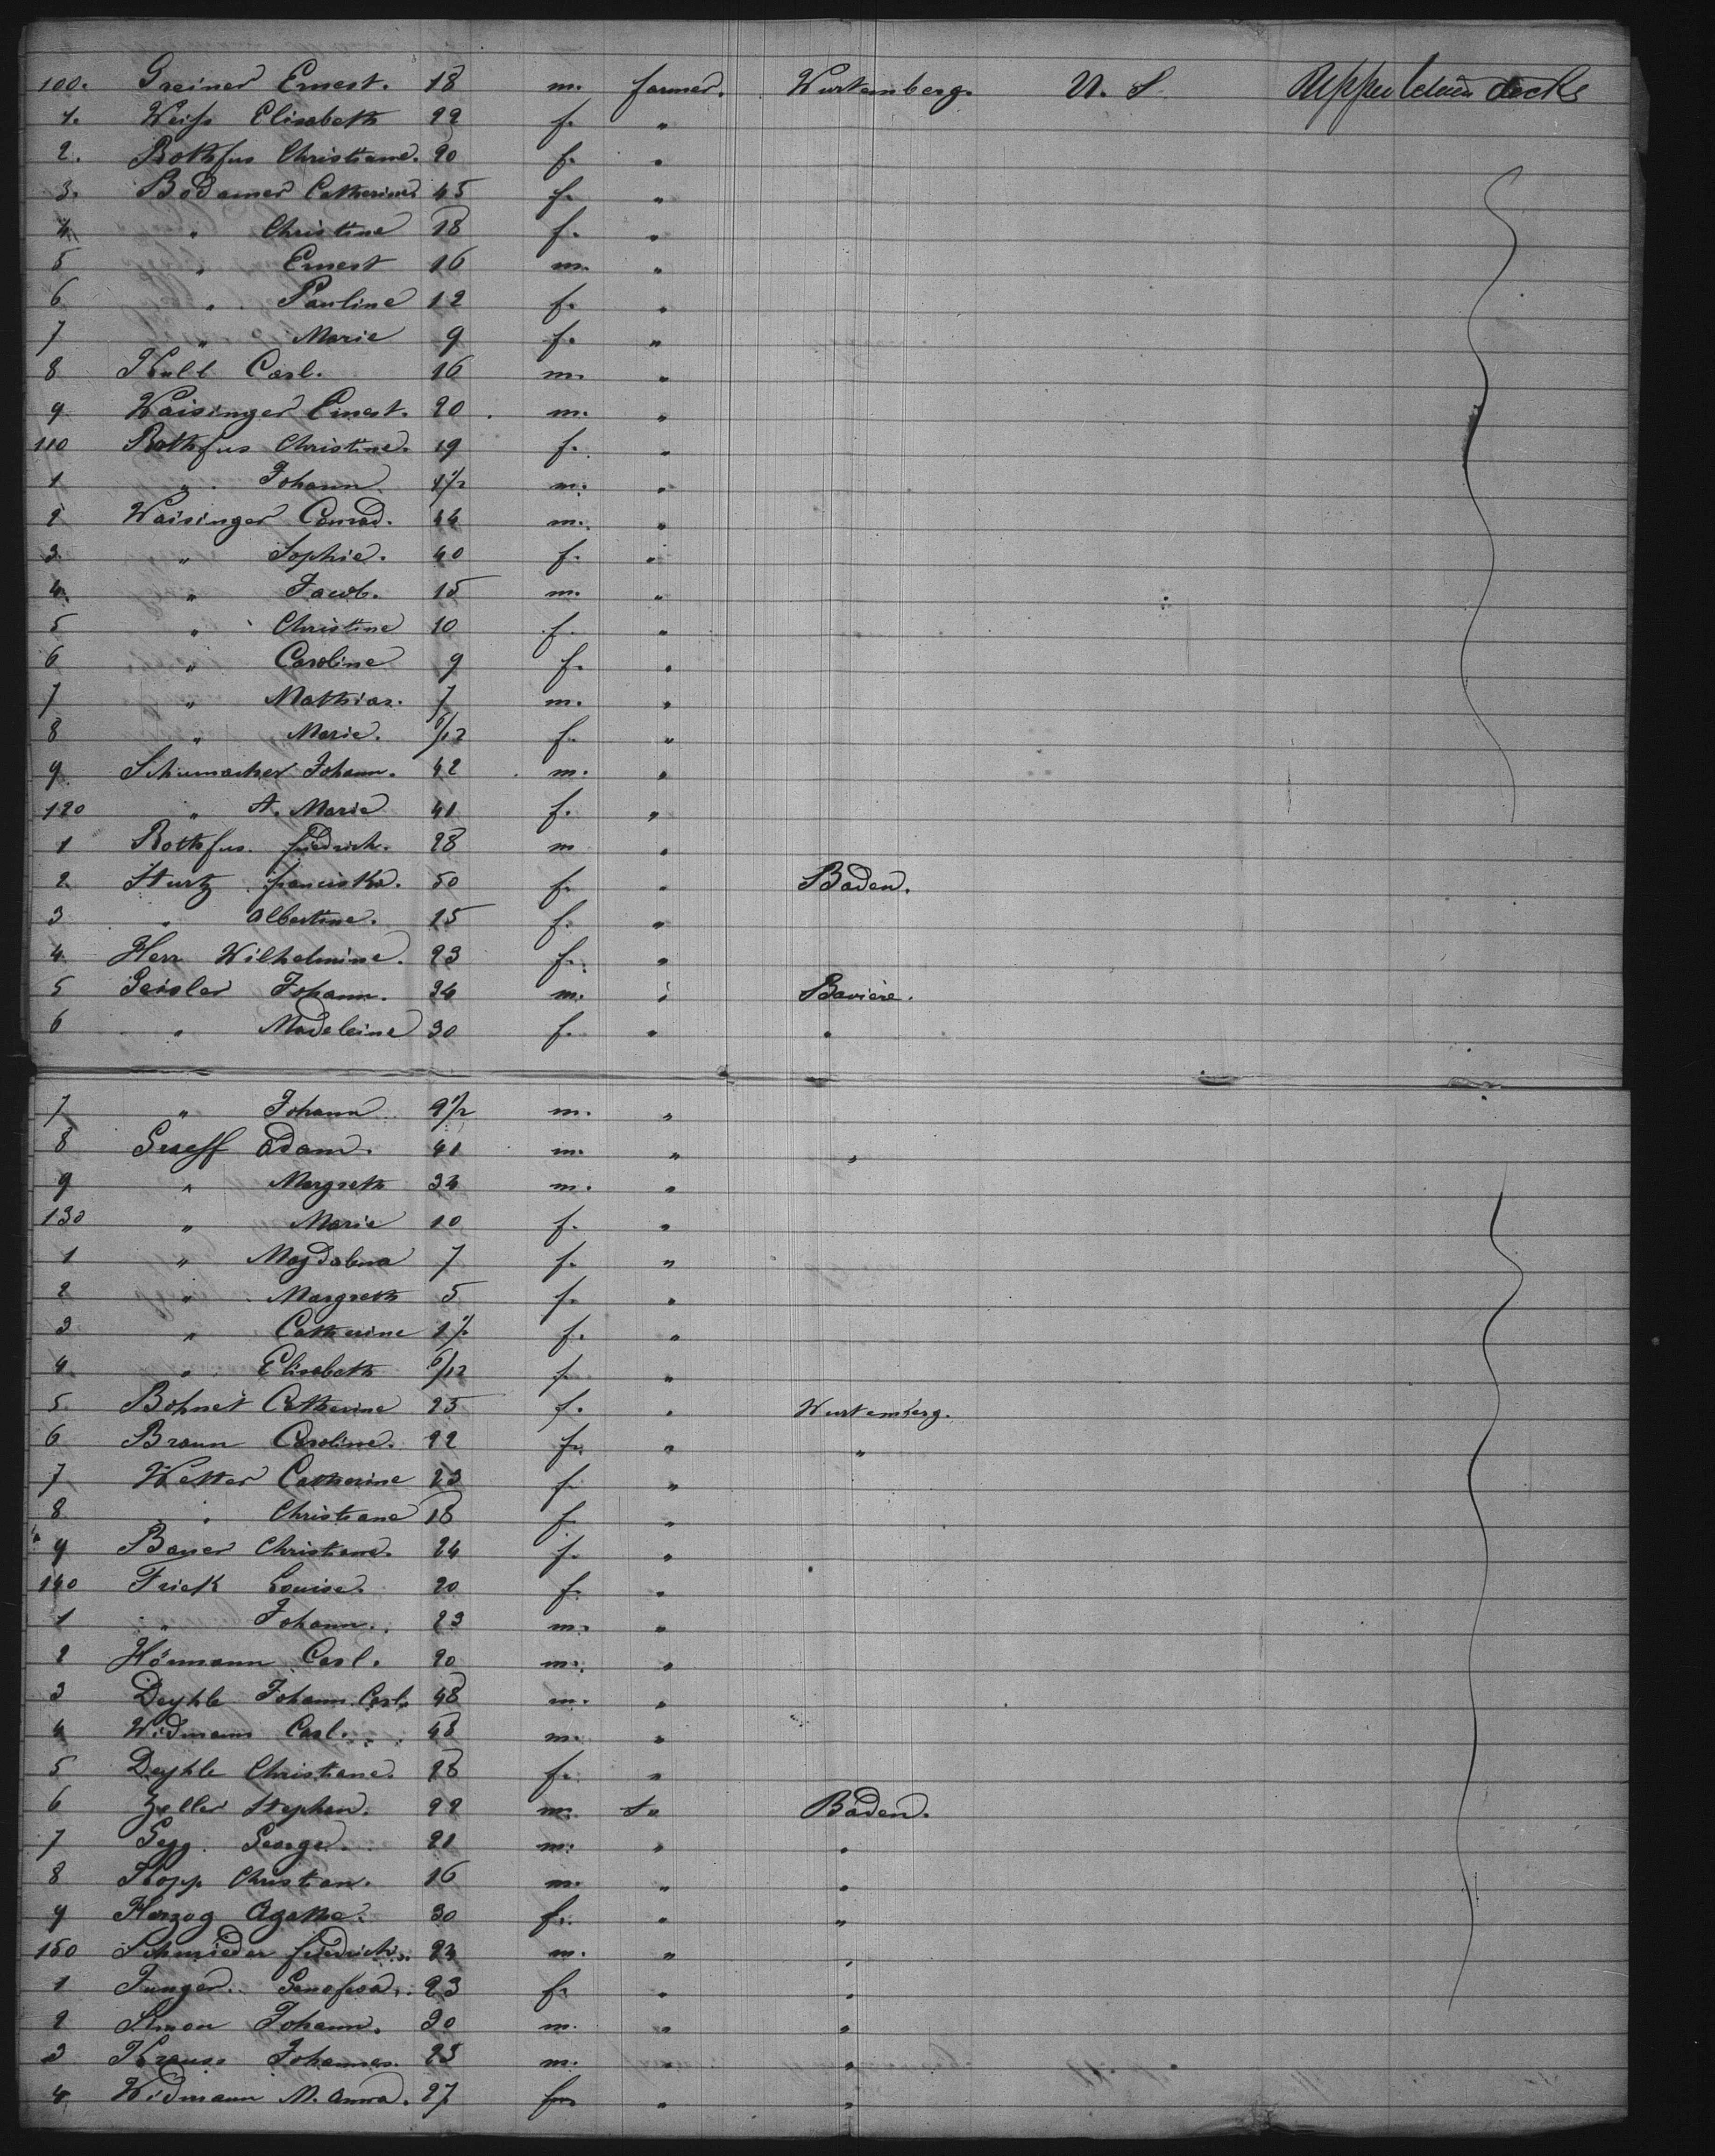 100. Greiner Ernest. 18 m. farmer. Wurtemberg. U. S. Upper between decks
1. Weiss Elisabeth 22 f. "
2. Rothfus Christiane. 20 f. "
3. Bodamer Catherine 45 f. "
4 " Christine 18 f. "
5 " Ernest 16 m. "
6 " Pauline 12 f. "
7 " Marie 9 f. "
8 Kull Carl. 16 m. "
9 Waisinger Ernest. 20. m. "
110 Rothfus Christine. 19 f. "
1 " Johann 1/2 m. "
2 Waisinger Conrad. 44 m. "
3 " Sophie. 40 f. "
4. " Jacob. 15 m. "
5 " Christine 10 f. "
6 " Caroline 9 f. "
7 " Mathias. 7 m. "
8 " Marie. 6/12 f. "
9 Schumacher Johann. 42 m. "
120 " A. Marie 41 f. "
1 Rothfus. friedrich. 28 m "
2 Sturtz franciska. 50 f. " Baden.
3 " Albertine. 15 f. "
4 Herr Wilhelmine. 23 f. "
5 Geisler Johann. 34 m. " Baviere.
6 " Madeleine 30 f. " "
7 " Johann 9 1/2 m. "
8 Greff Adam. 41 m. " "
9 " Margreth 34 m. "
130 " Marie 10 f. "
1 " Magdalena 7 f. "
2 " Margreth 5 f. "
3 " Catherine 1 1/2 f. "
4 " Elisabeth 6/12 f. "
5. Bohnet Catherine 25 f. " Wurtemberg.
6 Braun Caroline. 22 f. " "
7 Wetter Catherine 23 f. "
8 " Christiane 18 f. "
9 Bauer Christiane. 24 f. "
140 Frick Louise. 20 f. "
1 " Johann. 23 m. "
2 Hörmann Carl. 20 m. "
3 Deyhle Johann Carl. 48 m. "
4 Widmann Carl. 48 m. "
5 Deyhle Christiane. 28 f. "
6 Zeller Stephan. 22 m. " Baden.
7 Segg. George. 21 m. " "
8 Kopp Christian. 16 m. " "
9 Herzog Agathe. 30 f. " "
150 Schmieder friedrich. 24 m. " "
1 Junger. Genofeva. 23 f. " "
2 Simon Johann. 30 m. " "
3 Krauss Johannes. 25 m. " "
4 Widmann M. Anna. 27 f " "